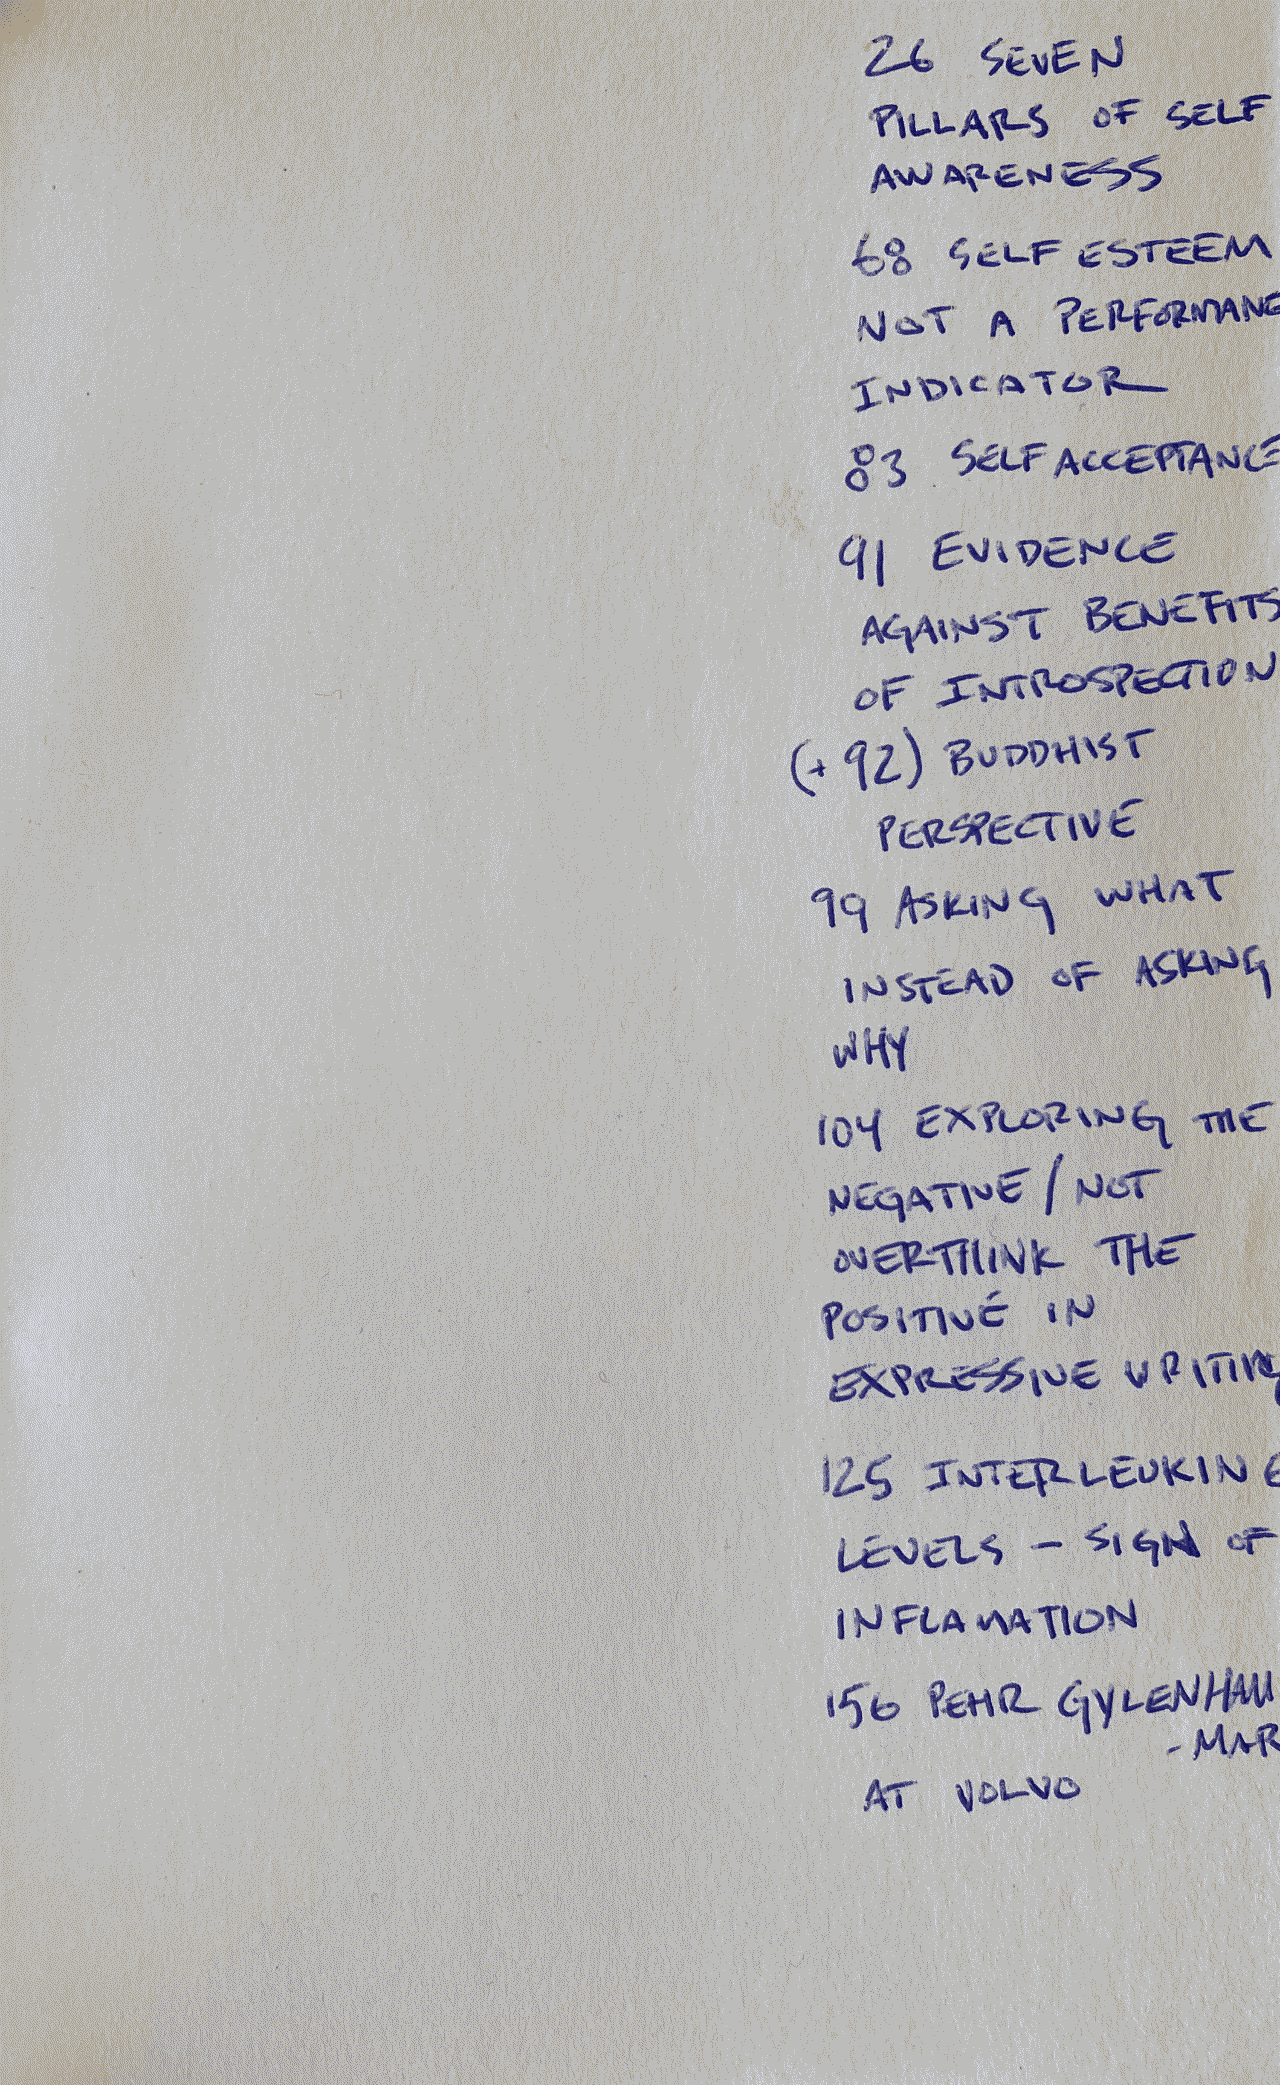 26 SEVEN
PILLARS OF SELF
AWARENESS
68 SELF ESTEEM
NOT A PERFORMANC
INDICATOR
83 SELF ACCEPTANCE
91 EVIDENCE
AGAINST BENEFITS
OF INTROSPECTION
(+ 92) BUDDHIST
PERSPECTIVE
99 ASKING WHAT
INSTEAD OF ASKING
WHY
104 EXPLORING THE
NEGATIVE / NOT
OVERTHINK THE
POSITIVE IN
EXPRESSIVE WRITING
125 INTERLEUKIN 6
LEVELS – SIGN OF
INFLAMATION
156 PEHR
- MAR
AT VOLVO